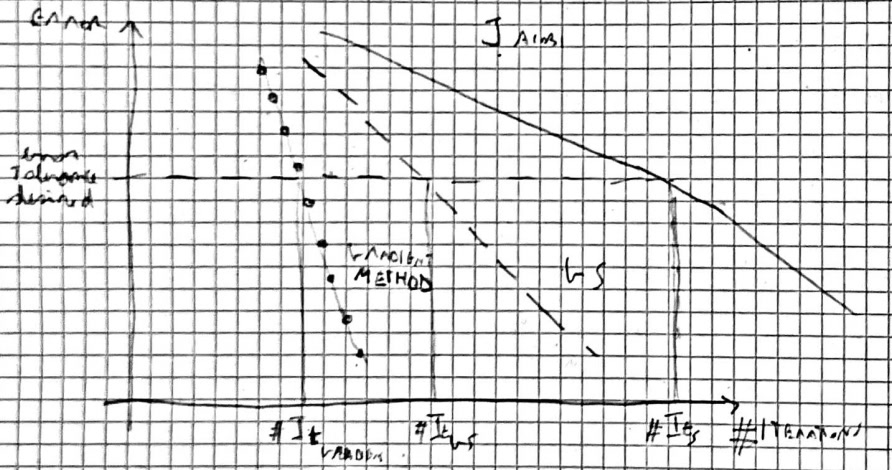 ERROR
JACOBI
error
Tolerance
desired
GRADIENT
METHOD
GS
#It
GRADIENT
#It GS
#It J
#ITERATIONS